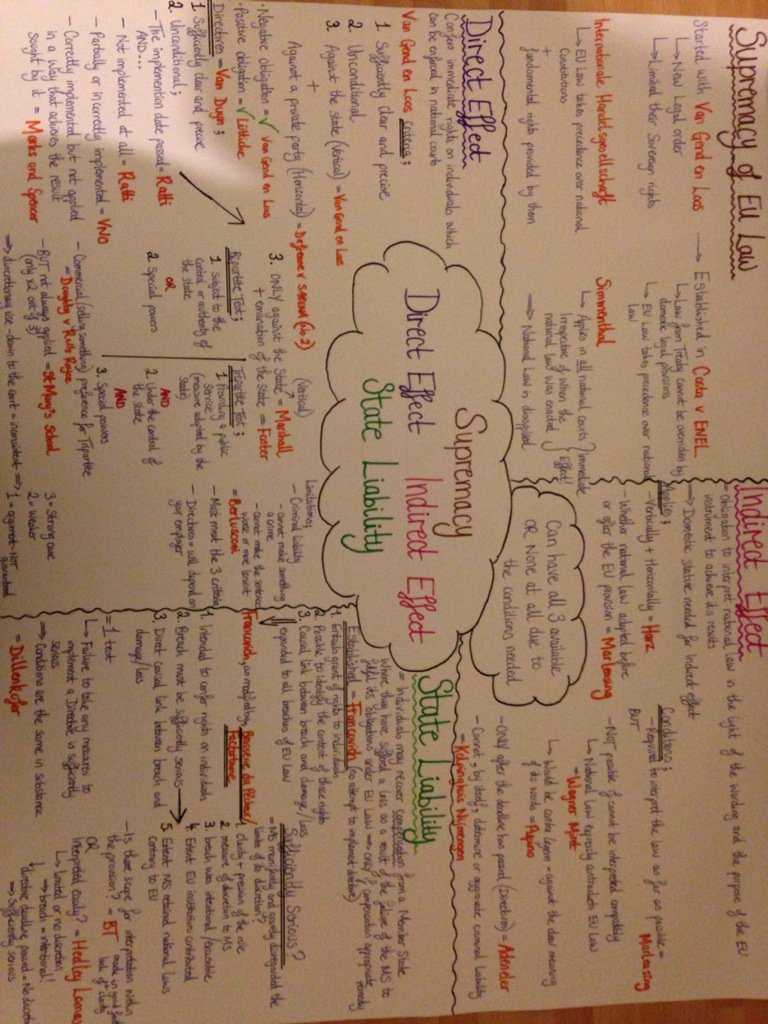 Supremacy of EU Law
Started with Van Gend en Loos → Established in Costa v ENEL
↳ New Legal order
↳ Limited their Sovereign rights
↳ Law from Treaty cannot be overriden by
domestic legal provisions
↳ EU Law takes precedence over national
law
Internationale Handelsgesellschaft
↳ EU Law takes precedence over national
Constitutions
+
fundamental rights provided by them
Simmenthal
↳ Applies in all national courts
Irrespective of when the
national law was enacted
} Immediate
Effect!
⇒ National Law is disapplied
Indirect Effect
= obligation to interpret national law in the light of the wording and the purpose of the EU
instrument to achieve its results
⇒ Domestic statute needed for Indirect effect
Applies;
- Vertically + Horizontally = Harz
- Whether national law adopted before
or after the EU provision = Marleasing
Conditions;
- Required to interpret the law as far as possible =
Marleasing
BUT
- NOT possible if cannot be interpreted compatibly
↳ National Law expressly contradicts EU Law
= Wagner Miret
↳ Would be contra legem - against the clear meaning
of its words = Pupino
- ONLY after the deadline has passed (Directives) = Adeneler
- Cannot, by itself, determine or aggravate criminal liability
= Kolpinghuis Nijmegen
Can have all 3 available
OR None at all due to
the conditions needed
Supremacy
Direct Effect Indirect Effect
State Liability
Direct Effect
Confers immediate rights on individuals which
can be enforced in national courts
Van Gend en Loos criteria;
1. Sufficiently clear and precise
2. Unconditional
3. Against the state (Vertical) = Van Gend en Loos
+
Against a private party (Horizontal) = Defrenne v SABENA (No 2)
• Negative obligation = ✓ Van Gend en Loos
• Positive obligation = ✓ Lütticke
Directives = Van Duyn;
1. Sufficiently clear and precise
2. Unconditional;
- The implementation date passed = Ratti
AND...
- Not implemented at all = Ratti
- Partially or incorrectly implemented = VNO
- Correctly implemented but not applied
in a way that achieves the result
sought by it = Marks and Spencer
(Vertical)
3. ONLY against the State? = Marshall
+ emanation of the State = Foster
Bipartite Test;
1. Subject to the
control or authority of
the state
OR
2. Special powers
Tripartite Test;
1. Providing a public
service
(measure adopted by the
State)
AND
2. Under the control of
the state
AND
3. Special powers
- Commercial (selling something) preference for Tripartite
= Doughty v Rolls Royce
- BUT not always applied = St Mary's School
(only x2 out of 3)
⇒ discretionary use - down to the court = inconsistent ⇒
3 = Strong case
2 = Weaker
1 = argument - Not
guaranteed
Limitations;
- Criminal Liability
- cannot make something
a crime
- cannot make the sentence
worse or more lenient
= Berlusconi
- Must meet the 3 criteria
- Directives = will depend on
your employer
State Liability
= Individuals may recover compensation from a Member State
where they have suffered a loss as a result of the failure of the MS to
fulfil its obligations under EU Law ⇒ ONLY if compensation appropriate remedy
Established = Francovich (no attempt to implement directive)
1. Entails grant of rights to individuals
2. Possible to identify the content of these rights
3. Causal link between breach and damage/loss
expanded to all breaches of EU Law
Francovich, as modified by Brasserie du Pêcheur/
Factortame
1. Intended to confer rights on individuals
2. Breach must be sufficiently serious →
3. Direct causal link between breach and
damage/loss
= 1 test
↳ Failure to take any measures to
implement a Directive is sufficiently
serious
⇒ Conditions are the same in substance
= Dillenkofer
Sufficiently Serious?
= MS manifestly and gravely disregarded the
limits of its discretion?
1. clarity + precision of the rule
2. measure of discretion to MS
3. breach was intentional/excusable
4. Extent EU institution contributed
5. Extent MS retained national laws
contrary to EU
- Is there scope for interpretation within
the provision? = BT
made in good faith
lack of clarity
OR
Interpreted easily? = Hedley Lomas
↳ Limited or no discretion
⇒ breach = intentional!
directive deadline passed = No discretion
⇒ Sufficiently serious